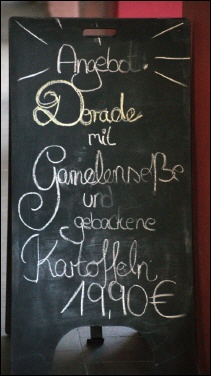 Angebot.
Dorade
mit
Garnelensoße
und
gebackene
Kartoffeln
19,90€